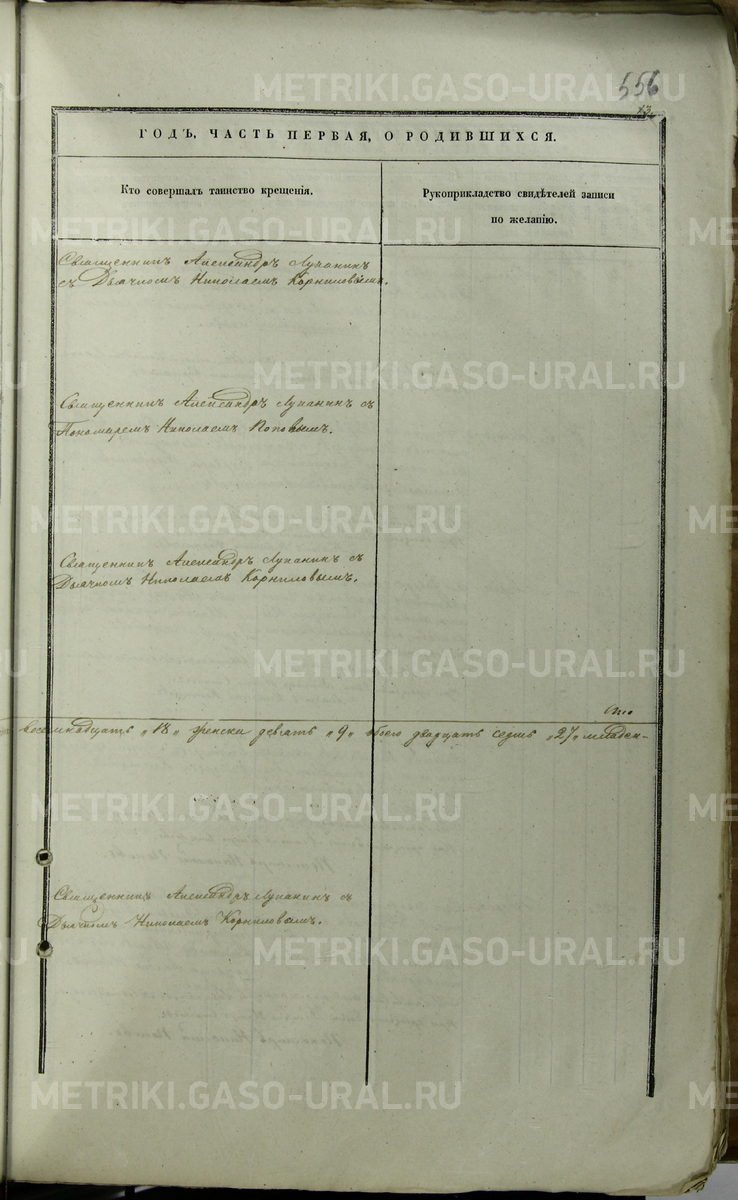 556
ГОДЪ, ЧАСТЬ ПЕРВАЯ, О РОДИВШИХСЯ.
Кто совершалъ таинство крещенія.
Рукоприкладство свидѣтелей записи
по желанію.
Священникъ Александръ Лупанинъ
съ Дьячкомъ Николаемъ Корниловымъ.
Священникъ Александръ Лупанинъ съ
Пономаремъ Николаемъ Поповымъ.
Священникъ Александръ Лупанинъ съ
Дьячкомъ Николаемъ Корниловымъ.
восемнадцать „18„ женска девять „9„ обоего двадцать седмь „27„ младен-
Священникъ Александръ Лупанинъ съ
Дьячкомъ Николаемъ Корниловымъ.
METRIKI.GASO-URAL.RU